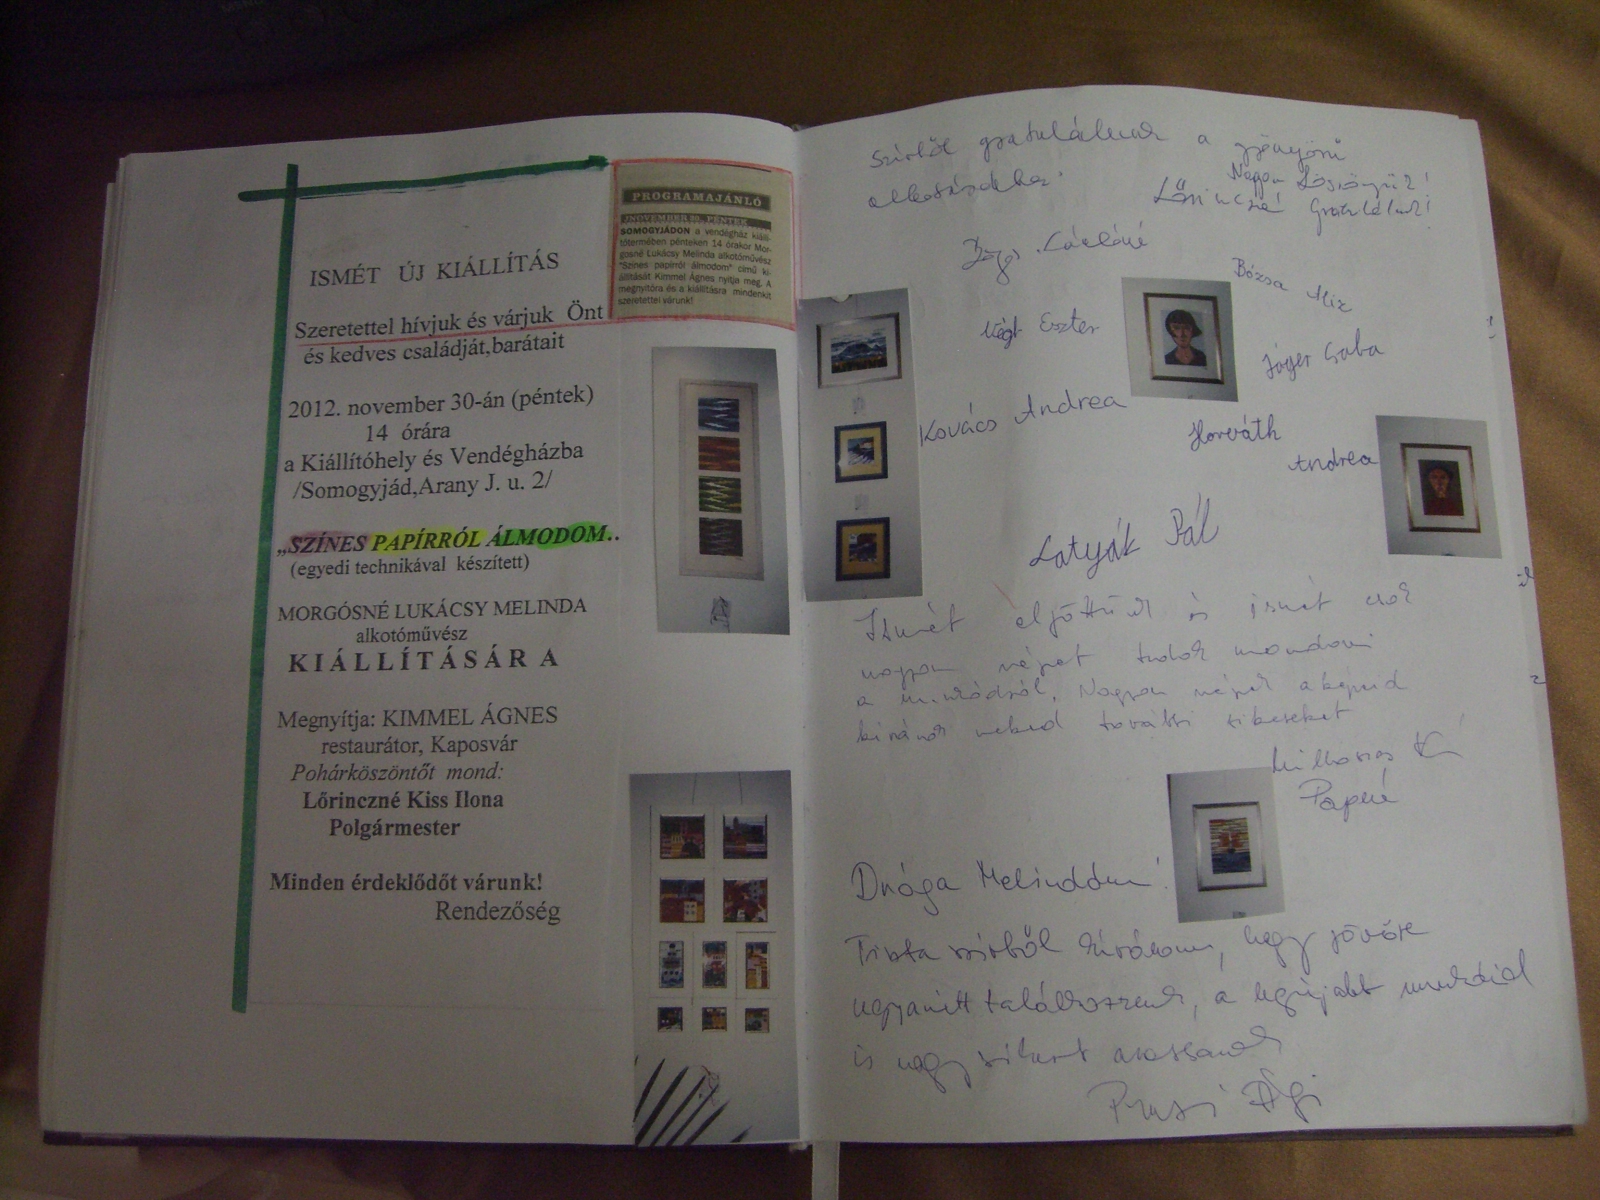 ISMÉT ÚJ KIÁLLÍTÁS
Szeretettel hívjuk és várjuk Önt
és kedves családját,barátait
2012. november 30-án (péntek)
14 órára
a Kiállítóhely és Vendégházba
/Somogyjád,Arany J. u. 2/
„SZÍNES PAPÍRRÓL ÁLMODOM..
(egyedi technikával készített)
MORGÓSNÉ LUKÁCSY MELINDA
alkotóművész
KIÁLLÍTÁSÁRA
Megnyítja: KIMMEL ÁGNES
restaurátor, Kaposvár
Pohárköszöntőt mond:
Lőrinczné Kiss Ilona
Polgármester
Minden érdeklődőt várunk!
Rendezőség
PROGRAMAJÁNLÓ
/NOVEMBER 30., PÉNTEK
SOMOGYJÁDON a vendégház kiállí-
tótermében pénteken 14 órakor Mor-
gósné Lukácsy Melinda alkotóművész
"Színes papírról álmodom" című ki-
állítását Kimmel Ágnes nyitja meg. A
megnyitóra és a kiállításra mindenkit
szeretettel várunk!
Szívből gratulálunk a gyönyörű
alkotásokhoz.
Nagyon köszönjük!
Lőrinczné Gratulálok!
Lászlóné
Bózsa Alíz
Végh Eszter
Jáger Csaba
Kovács Andrea
Horváth
Andrea
Latyák Pál
Ismét eljöttünk és ismét csak
nagyon szépet tudok mondani
a munkádról. Nagyon szépek a képeid
kívánok neked további sikereket
Papné
Drága Melindám!
Tiszta szívből kívánom, hogy jövőre
ugyanitt találkozzunk, a legújabb munkáid
is nagy sikert arassanak
Ági